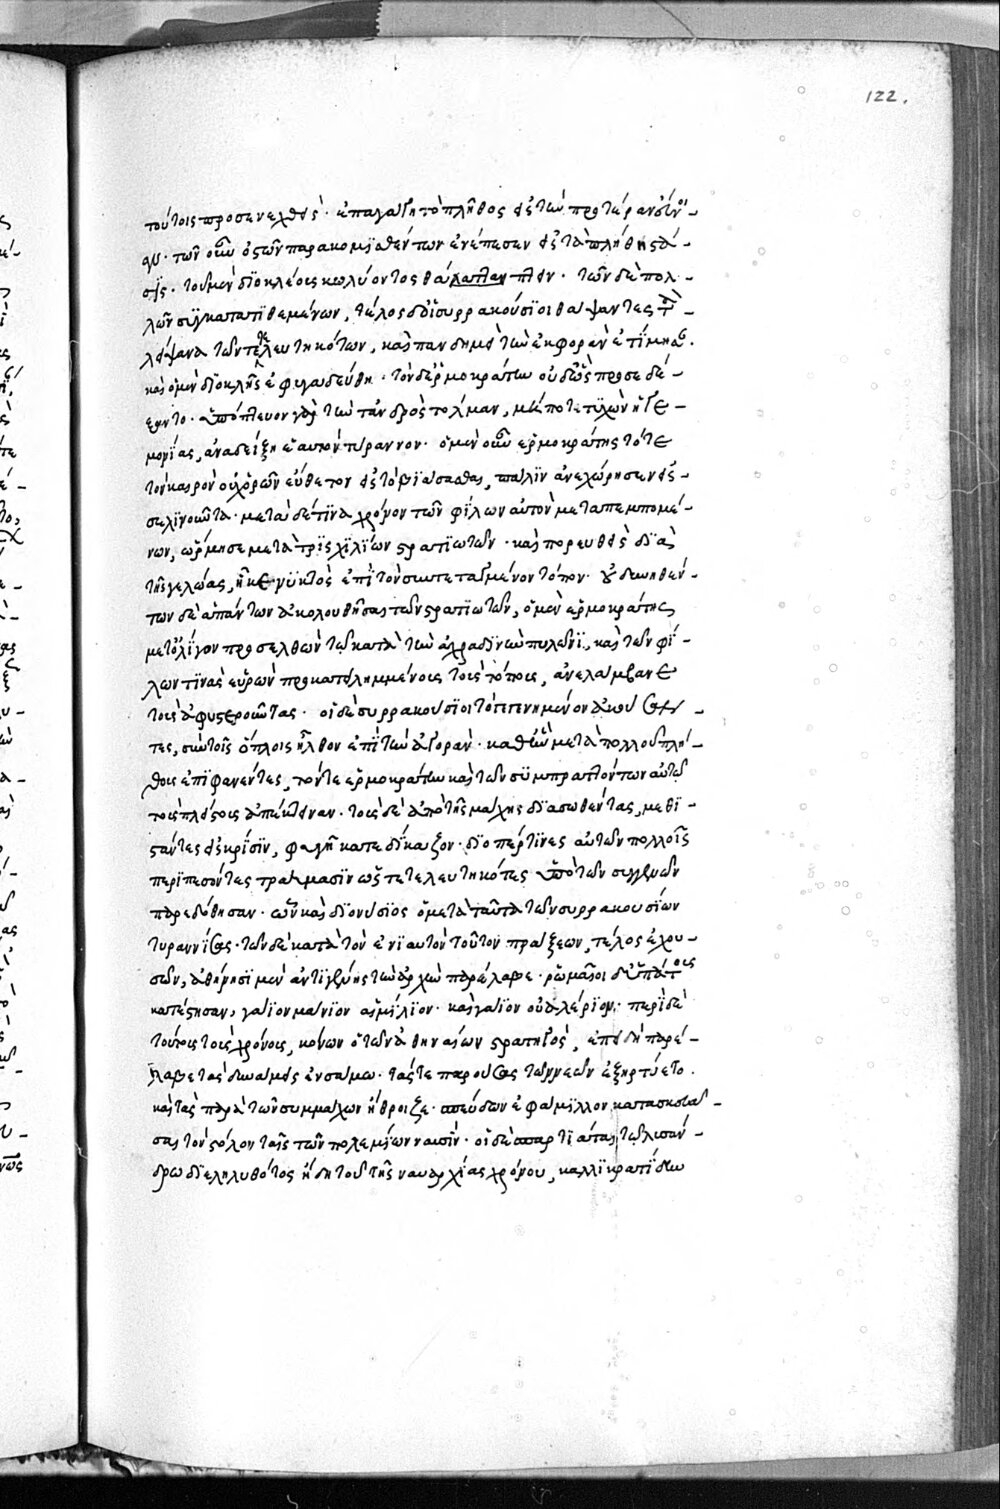 122.
τούτοις προσενεχθεὶς. ἐπαγάγῃ τὸ πλῆθος εἰς τὴν προτέραν εὔνοι-
αν. τῶν οὖν ὀστῶν παρακομϊσθέντων ἐνέπεσεν εἰς τὰ πλήθη στά-
σις. τοῦ μὲν δϊοκλέοις κωλύοντος θάπτειν. τῶν δὲ πολ-
λῶν συγκατατϊθεμένων, τέλος δ' οἱ συρρακούσϊοι θάψαντες τὰ
λείψανα τῶν τετελευτηκότων, καὶ πανδημεὶ τὴν ἐκφορὰν ἐτίμησαν.
καὶ ὁ μὲν δϊοκλῆς ἐφυγαδεύθη. τὸν δ' ἑρμοκράτην οὐδ' ὣς προσεδέ-
ξαντο. ὑπόπτευον γὰρ τὴν τἀνδρὸς τόλμαν, μή ποτε τυχὼν ἡγε-
μονίας, ἀναδείξῃ ἑαυτὸν τύραννον. ὁ μὲν οὖν ἑρμοκράτης τότε
τὸν καιρὸν οὐχ ὁρῶν εὔθετον εἰς τὸ βϊάσασθαι, πάλϊν ἀνεχώρησεν εἰς
σελϊνοῦντα. μετὰ δέ τϊνα χρόνον τῶν φίλων αὐτὸν μεταπεμπομέ-
νων, ὥρμησε μετὰ τρϊσχϊλϊων στρατϊωτῶν. καὶ πορευθεὶς δϊὰ
τῆς γελῴας, ἧκε νϋκτὸς ἐπὶ τὸν συντεταγμένον τόπον. οὐ δυνηθέν-
των δὲ ἁπάντων ἀκολουθῆσαι τῶν στρατϊωτῶν, ὁ μὲν ἑρμοκράτης
μετ' ὀλίγον προσελθὼν τῶ κατὰ τὴν ἀχραδϊνὴν πυλῶνϊ, καὶ τῶν φί-
λων τϊνὰς εὑρὼν προκατειλημμένοις τοὺς τόποις, ἀνελάμβανε
τοὺς ἀφυστεροῦντας. οἱ δὲ συρρακούσϊοι τὸ γεγενημένον ἀκούσαν-
τες, σὺν τοῖς ὅπλοις ἦλθον ἐπὶ τὴν ἀγορὰν. καθ' ἣν μετὰ πολλοῦ πλή-
θοις ἐπϊφανέντες, τόν τε ἑρμοκράτην καὶ τῶν συμπραττόντων αὐτῶ
τοὺς πλείστοις ἀπέκτειναν. τοὺς δὲ ἀπὸ τῆς μάχης δϊασωθέντας, μεθϊ-
στάντες εἰς κρίσϊν, φυγῇ κατεδίκαζον. δϊόπέρ τϊνες αὐτῶν πολλοῖς
περϊπεσόντες τραύμασϊν ὡς τετελευτηκότες ὑπὸ τῶν συγγενῶν
παρεδόθησαν. ὧν καὶ δϊονύσϊος ὁ μετὰ ταῦτα τῶν συρρακουσίων
τυραννήσας. τῶν δὲ κατὰ τὸν ἐνϊαυτὸν τοῦτον πράξεων, τέλος ἐχου-
σῶν, ἀθήνησϊ μὲν ἀντϊγένης τὴν ἀρχὴν παρέλαβε. ῥωμαῖοι δ' ὑπάτοις
κατέστησαν, γάϊον μάνϊον αἰμίλϊον. καὶ γάϊον οὐαλέρϊον. περὶ δὲ
τούτοις τοὺς χρόνοις, κόνων ὁ τῶν ἀθηναίων στρατηγὸς, ἐπειδὴ παρέ-
λαβε τὰς δυνάμεις ἐν σάμω. τάς τε παρούσας τῶν νεῶν ἐξηρτύετο.
καὶ τὰς παρὰ τῶν συμμάχων ἤθροιζε. σπεύδων ἐφάμϊλλον κατασκευά-
σαι τὸν στόλον ταῖς τῶν πολεμίων ναυσίν. οἱ δὲ σπαρτϊάται, τῶ λυσάν-
δρω δϊεληλυθότος ἤδη τοῦ τῆς ναυαρχίας χρόνου, καλλϊκρατϊδην